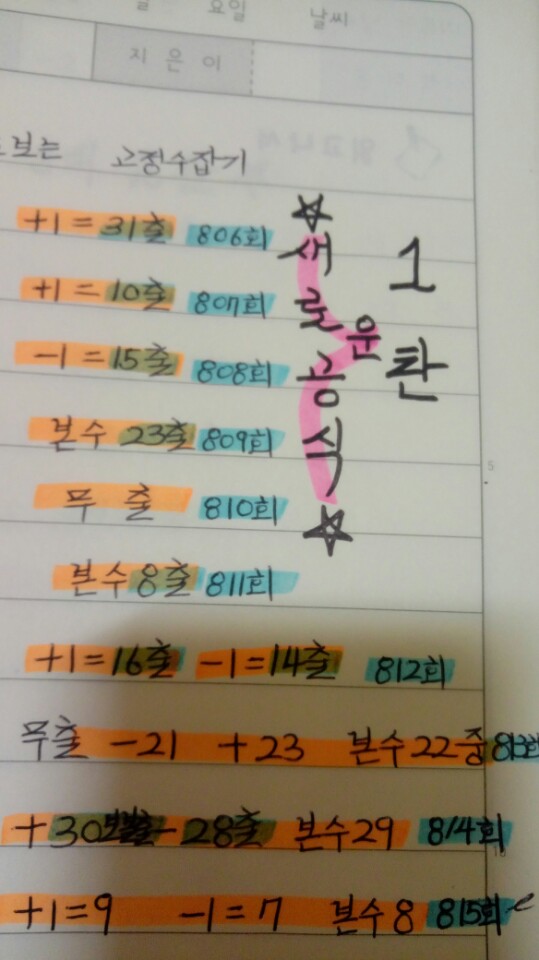 요일 날씨
지은이
보는 고정수잡기
+1=31출 806회
+1=10출 807회
-1=15출 808회
본수 23출 809회
무출 810회
본수8출 811회
+1=16출 -1=14출 812회
무출 -21 +23 본수22중 813회
+30 -28출 본수29 814회
+1=9 -1=7 본수8 815회
☆새로운공식☆
1탄